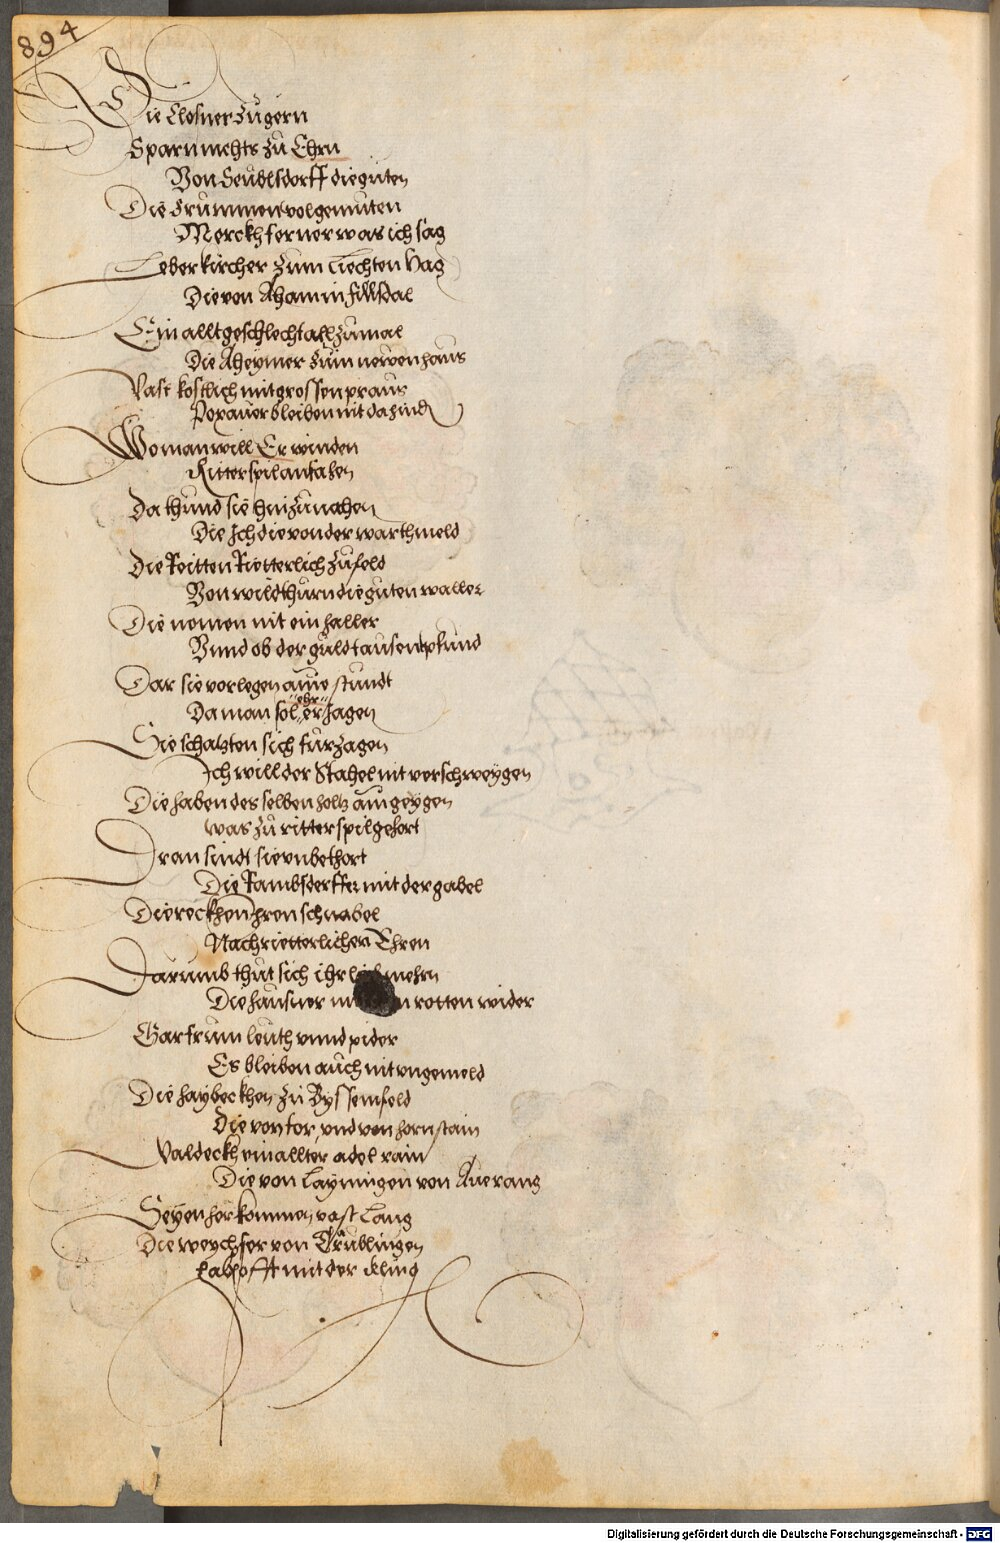 894
Die Closner zu gern
Sparn nichts zu Ehrn
Von Seublsdorff die guten
Die Frummen wolgemuten
Merckh ferner was ich sag
Leberkircher zum Liechten Hag
Die von Ahaim in Fillsdal
Ein allt geschlecht all zumal
Die Aheymer zum newenhaus
Vast kostlich mit grossen praus
Poxauer bleiben nit dahind
Wo man will Er winden
Ritterspil anfahen
Da thund sie hinzu nahen
Die Ich die von der warth meld
Die Reitten Ritterlich zu feld
Von wildthurn die guten waller
Die nemen nit ein haller
Vnnd ob der guld tausent pfund
Dar sie vorlegen aine stundt
Da man sol ehr er Jagen
Sie schatzten sich fur zagen
Ich will der Stahel nit verschweygen
Die haben des selben holtz ain geygen
was zu ritterspil gehort
Dran sindt sie vnbethort
Die Rambsderffer mit der gabel
Die reckhen Ihren schnabel
Nach rietterlichen Ehren
Darumb thut sich ihr mehrn
Die hausner rotten wider
Gar frum leuth vnnd pider
Es bleiben auch nit vngemeld
Die haybeckhen zu Wyssemfeld
Die von tor, vnd von hornstain
Valdeckh ein allter adel rain
Die von Layningen von Auerang
Seyen herkommen vast Lang
Die weychser von Trublingen
mit der kling
Digitalisierung gefördert durch die Deutsche Forschungsgemeinschaft - DFG